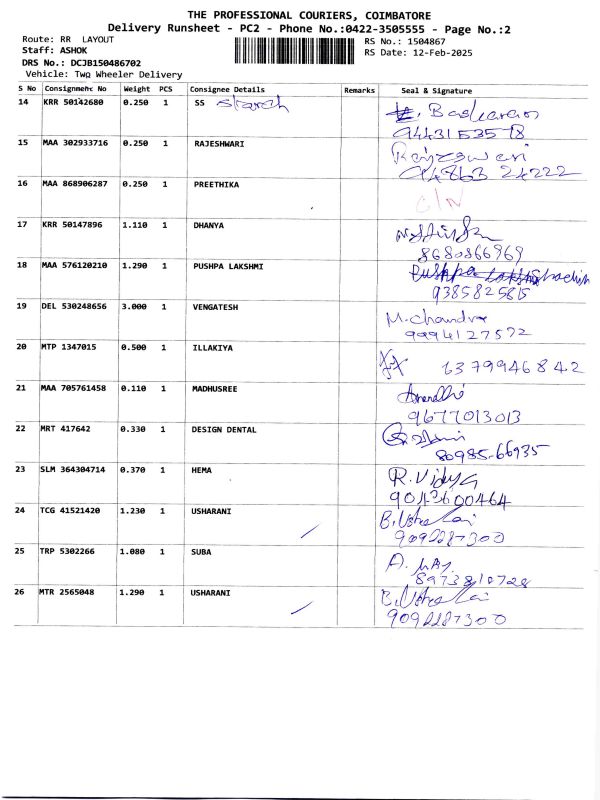 THE PROFESSIONAL COURIERS, COIMBATORE
Delivery Runsheet - PC2 - Phone No.:0422-3505555 - Page No.:2
Route: RR LAYOUT
RS No.: 1504867
Staff: ASHOK
RS Date: 12-Feb-2025
DRS No.: DCJB150486702
Vehicle: Two Wheeler Delivery
S No Consignment No Weight PCS Consignee Details Remarks Seal & Signature
14 KRR 50142680 0.250 1 SS Starch Baskaran
9443153578
15 MAA 302933716 0.250 1 RAJESHWARI Rajeswari
94863 24222
16 MAA 868906287 0.250 1 PREETHIKA
17 KRR 50147896 1.110 1 DHANYA
8680866969
18 MAA 576120210 1.290 1 PUSHPA LAKSHMI Pushpa
9385825815
19 DEL 530248656 3.000 1 VENGATESH M. Chandra
9994127572
20 MTP 1347015 0.500 1 ILLAKIYA 6379946842
21 MAA 705761458 0.110 1 MADHUSREE
9677013013
22 MRT 417642 0.330 1 DESIGN DENTAL
80985-66935
23 SLM 364304714 0.370 1 HEMA R. Vidya
9043600464
24 TCG 41521420 1.230 1 USHARANI B. Usha Rani
9092287300
25 TRP 5302266 1.080 1 SUBA A.
8973810728
26 MTR 2565048 1.290 1 USHARANI B. Usha Rani
9092287300